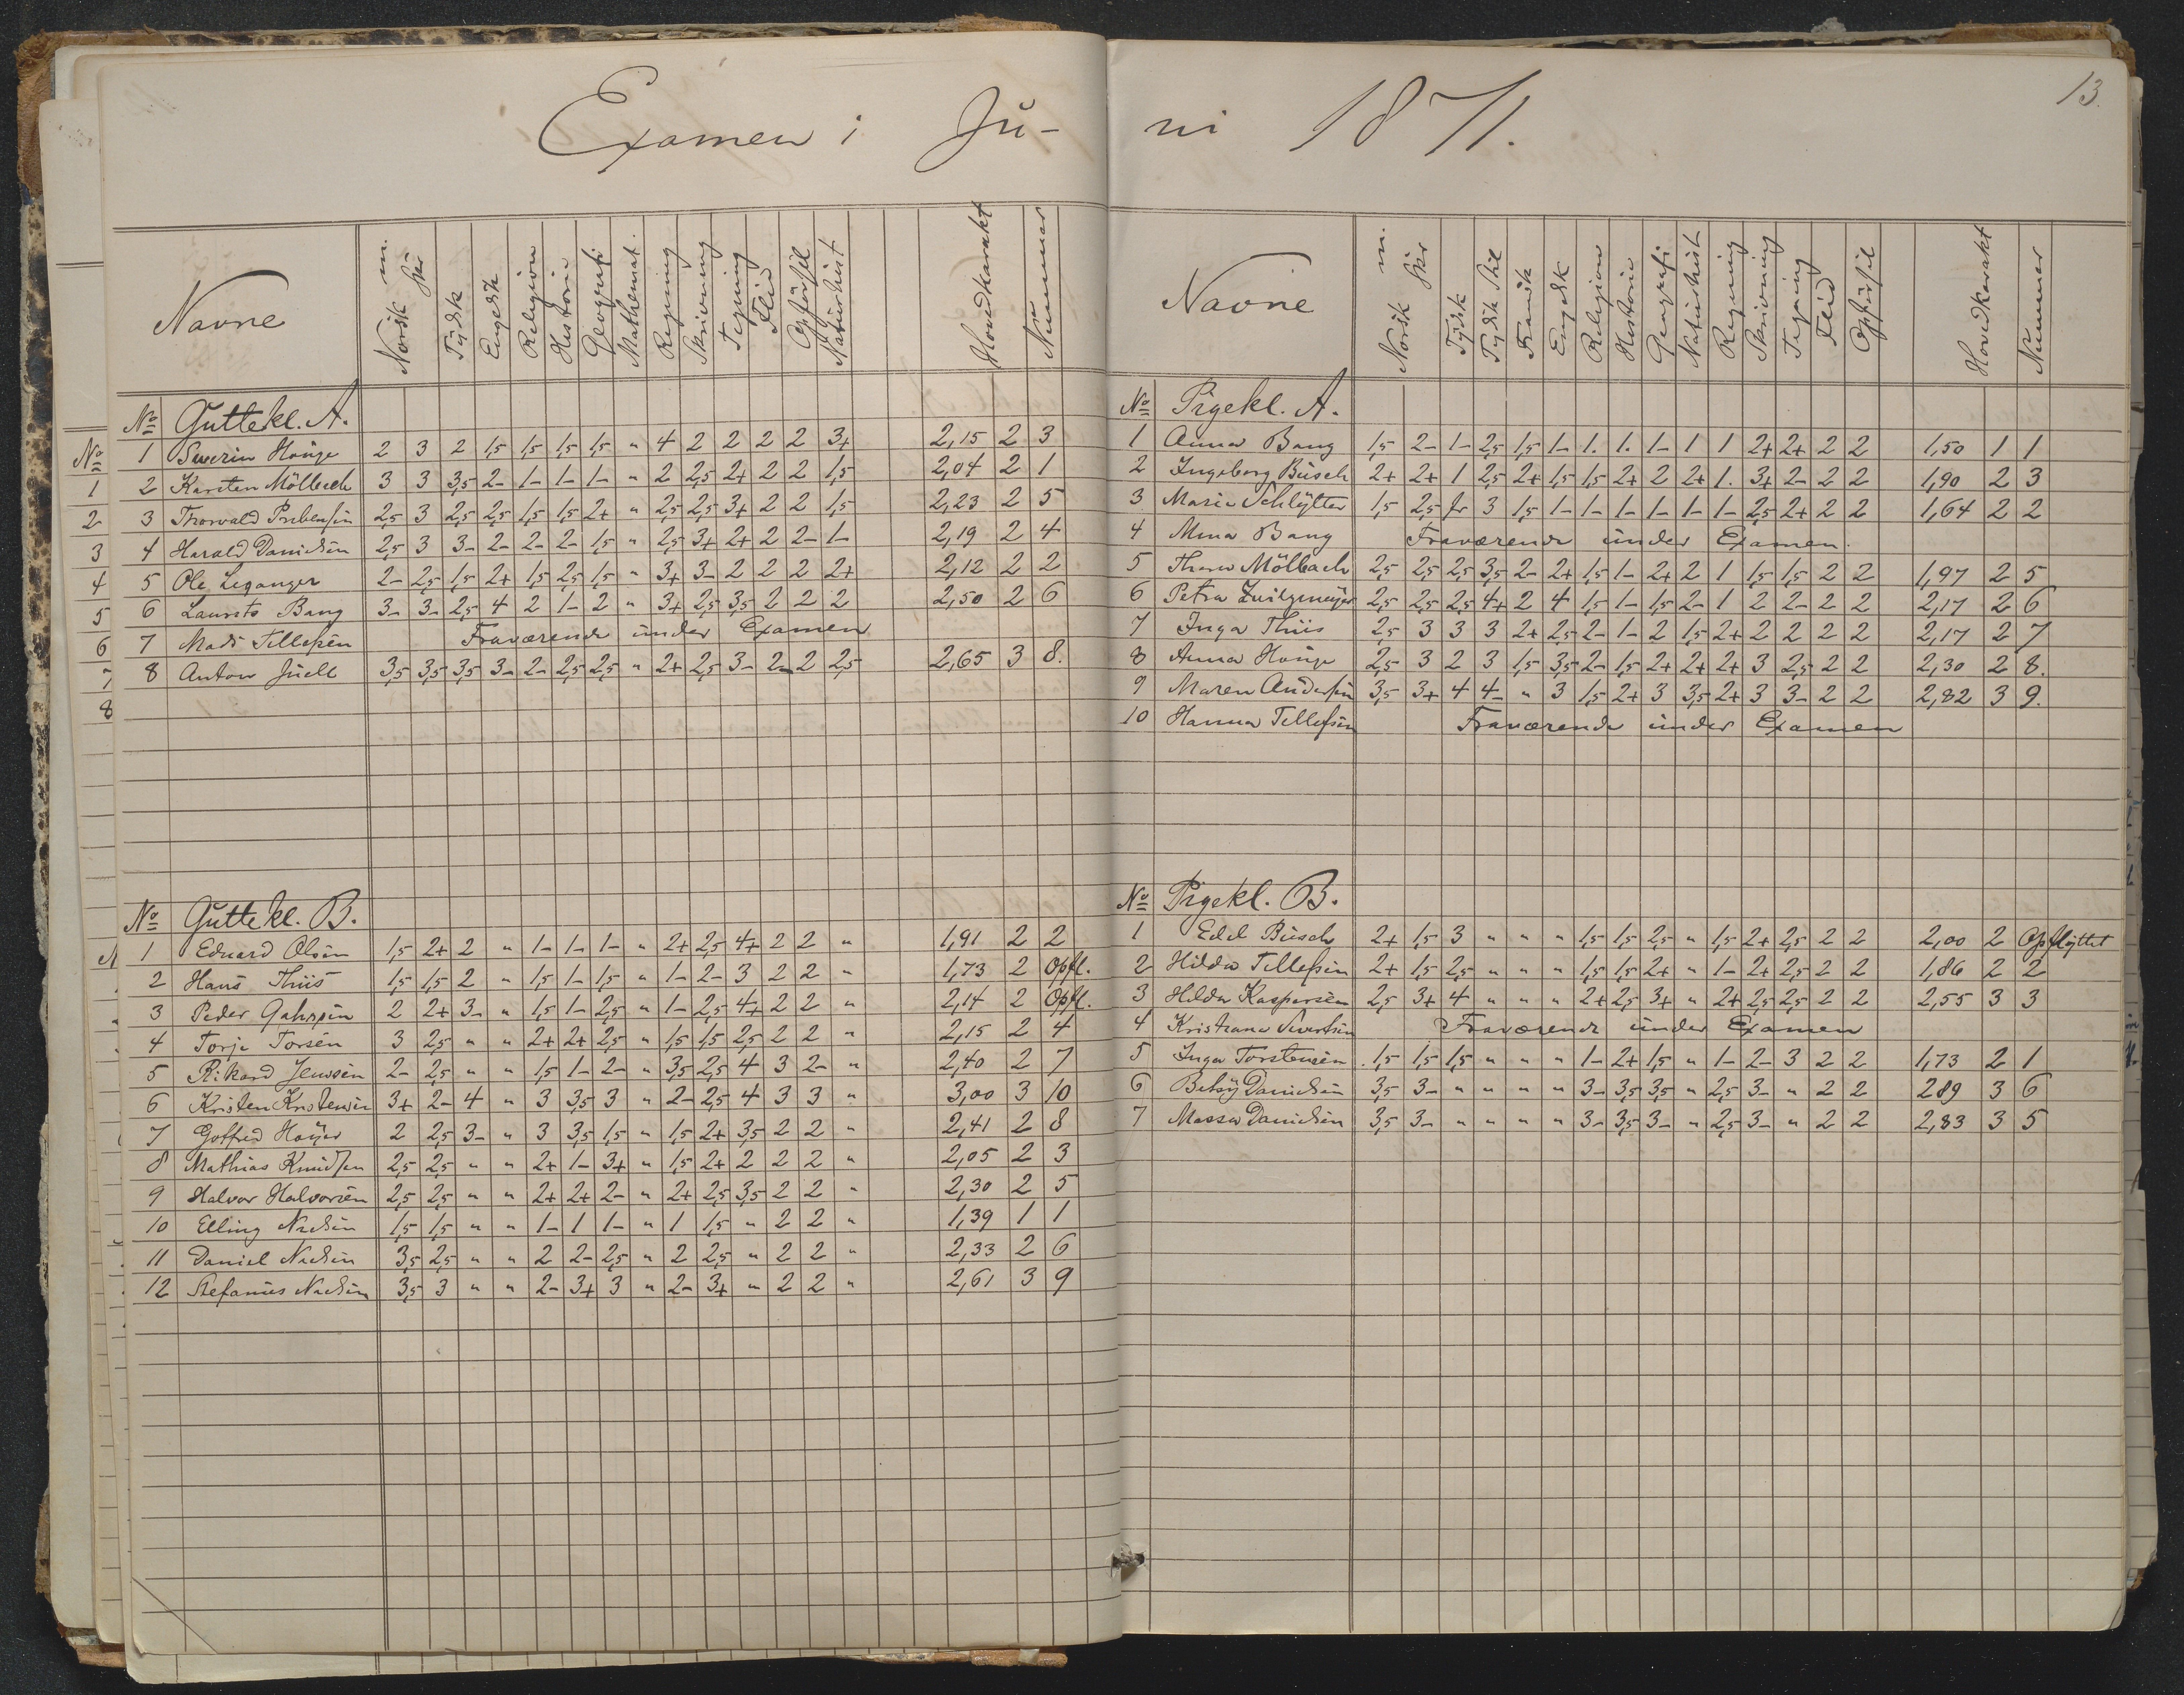 Examen i Ju-
Navne | Norsk m. skr | Tydsk | Engelsk | Religion | Historie | Geografi | Mathemat. | Regning | Skrivning | Tegning | Flid | Opförsel | Naturhist | Hovedkarakt | Nummer
No Guttekl. A.
1 Severin Houge 2 3 2 1,5 1,5 1,5 1,5 " 4 2 2 2 2 3+ 2,15 2 3
2 Karsten Mölbach 3 3 3,5 2- 1- 1- 1- " 2 2,5 2+ 2 2 1,5 2,04 2 1
3 Thorvald Prebensen 2,5 3 2,5 2,5 1,5 1,5 2+ " 2,5 2,5 3+ 2 2 1,5 2,23 2 5
4 Harald Danielsen 2,5 3 3- 2- 2- 2- 1,5 " 2,5 3+ 2+ 2 2- 1- 2,19 2 4
5 Ole Leganger 2- 2,5 1,5 2+ 1,5 2,5 1,5 " 3+ 3- 2 2 2 2+ 2,12 2 2
6 Laurits Bang 3- 3- 2,5 4 2 1- 2 " 3+ 2,5 3,5 2 2 2 2,50 2 6
7 Mads Tellefsen Fraværende under Examen
8 Anton Juell 3,5 3,5 3,5 3- 2- 2,5 2,5 " 2+ 2,5 3- 2- 2 2,5 2,65 3 8.
No Guttekl. B.
1 Eduard Olsen 1,5 2+ 2 " 1- 1- 1- " 2+ 2,5 4+ 2 2 " 1,91 2 2
2 Hans Thiis 1,5 1,5 2 " 1,5 1- 1,5 " 1- 2- 3 2 2 " 1,73 2 Opfl.
3 Peder Gahrsen 2 2+ 3- " 1,5 1- 2,5 " 1- 2,5 4+ 2 2 " 2,14 2 Opfl.
4 Torje Torsen 3 2,5 " " 2+ 2+ 2,5 " 1,5 1,5 2,5 2 2 " 2,15 2 4
5 Rikard Jensen 2- 2,5 " " 1,5 1- 2- " 3,5 2,5 4 3 2- " 2,40 2 7
6 Kristen Kristensen 3+ 2- 4 " 3 3,5 3 " 2- 2,5 4 3 3 " 3,00 3 10
7 Gotfred Høyer 2 2,5 3- " 3 3,5 1,5 " 1,5 2+ 3,5 2 2 " 2,41 2 8
8 Mathias Knudsen 2,5 2,5 " " 2+ 1- 3+ " 1,5 2+ 2 2 2 " 2,05 2 3
9 Halvor Halvorsen 2,5 2,5 " " 2+ 2+ 2- " 2+ 2,5 3,5 2 2 " 2,30 2 5
10 Elling Nielsen 1,5 1,5 " " 1- 1 1- " 1 1,5 " 2 2 " 1,39 1 1
11 Daniel Nielsen 3,5 2,5 " " 2 2- 2,5 " 2 2,5 " 2 2 " 2,33 2 6
12 Stefanus Nielsen 3,5 3 " " 2- 3+ 3 " 2- 3+ " 2 2 " 2,61 3 9
ni 1871.
13.
Navne | Norsk m. skr | Tydsk | Tydsk Stil | Fransk | Engelsk | Religion | Historie | Geografi | Naturhist | Regning | Skrivning | Tegning | Flid | Opförsel | Hovedkarakt | Nummer
No Pigekl. A.
1 Anna Bang 1,5 2- 1- 2,5 1,5 1- 1. 1. 1- 1 1 2+ 2+ 2 2 1,50 1 1
2 Ingeborg Busch 2+ 2+ 1 2,5 2+ 1,5 1,5 2+ 2 2+ 1. 3+ 2- 2 2 1,90 2 3
3 Marie Schlytter 1,5 2,5 fr 3 1,5 1- 1- 1- 1- 1- 1- 2,5 2+ 2 2 1,64 2 2
4 Mina Bang Fraværende under Examen.
5 Thora Mölbach 2,5 2,5 2,5 3,5 2- 2+ 1,5 1- 2+ 2 1 1,5 1,5 2 2 1,97 2 5
6 Petra Zwilgmeyer 2,5 2,5 2,5 4+ 2 4 1,5 1- 1,5 2- 1 2 2- 2 2 2,17 2 6
7 Inga Thiis 2,5 3 3 3 2+ 2,5 2- 1- 2 1,5 2+ 2 2 2 2 2,17 2 7
8 Anna Houge 2,5 3 2 3 1,5 3,5 2- 1,5 2+ 2+ 2+ 3 2,5 2 2 2,30 2 8.
9 Maren Andersen 3,5 3+ 4 4- " 3 1,5 2+ 3 3,5 2+ 3 3- 2 2 2,82 3 9.
10 Hanna Tellefsen Fraværende under Examen
No Pigekl. B.
1 Edel Busch 2+ 1,5 3 " " " 1,5 1,5 2,5 " 1,5 2+ 2,5 2 2 2,00 2 Opflyttet
2 Hilda Tellefsen 2+ 1,5 2,5 " " " 1,5 1,5 2+ " 1- 2+ 2,5 2 2 1,86 2 2
3 Hilda Kaspersen 2,5 3+ 4 " " " 2+ 2,5 3+ " 2+ 2,5 2,5 2 2 2,55 3 3
4 Kristiane Sivertsen Fraværende under Examen
5 Inga Torstensen 1,5 1,5 1,5 " " " 1- 2+ 1,5 " 1- 2- 3 2 2 1,73 2 1
6 Betsy Danielsen 3,5 3- " " " " 3- 3,5 3,5 " 2,5 3- " 2 2 2,89 3 6
7 Massa Danielsen 3,5 3- " " " " 3- 3,5 3- " 2,5 3- " 2 2 2,83 3 5